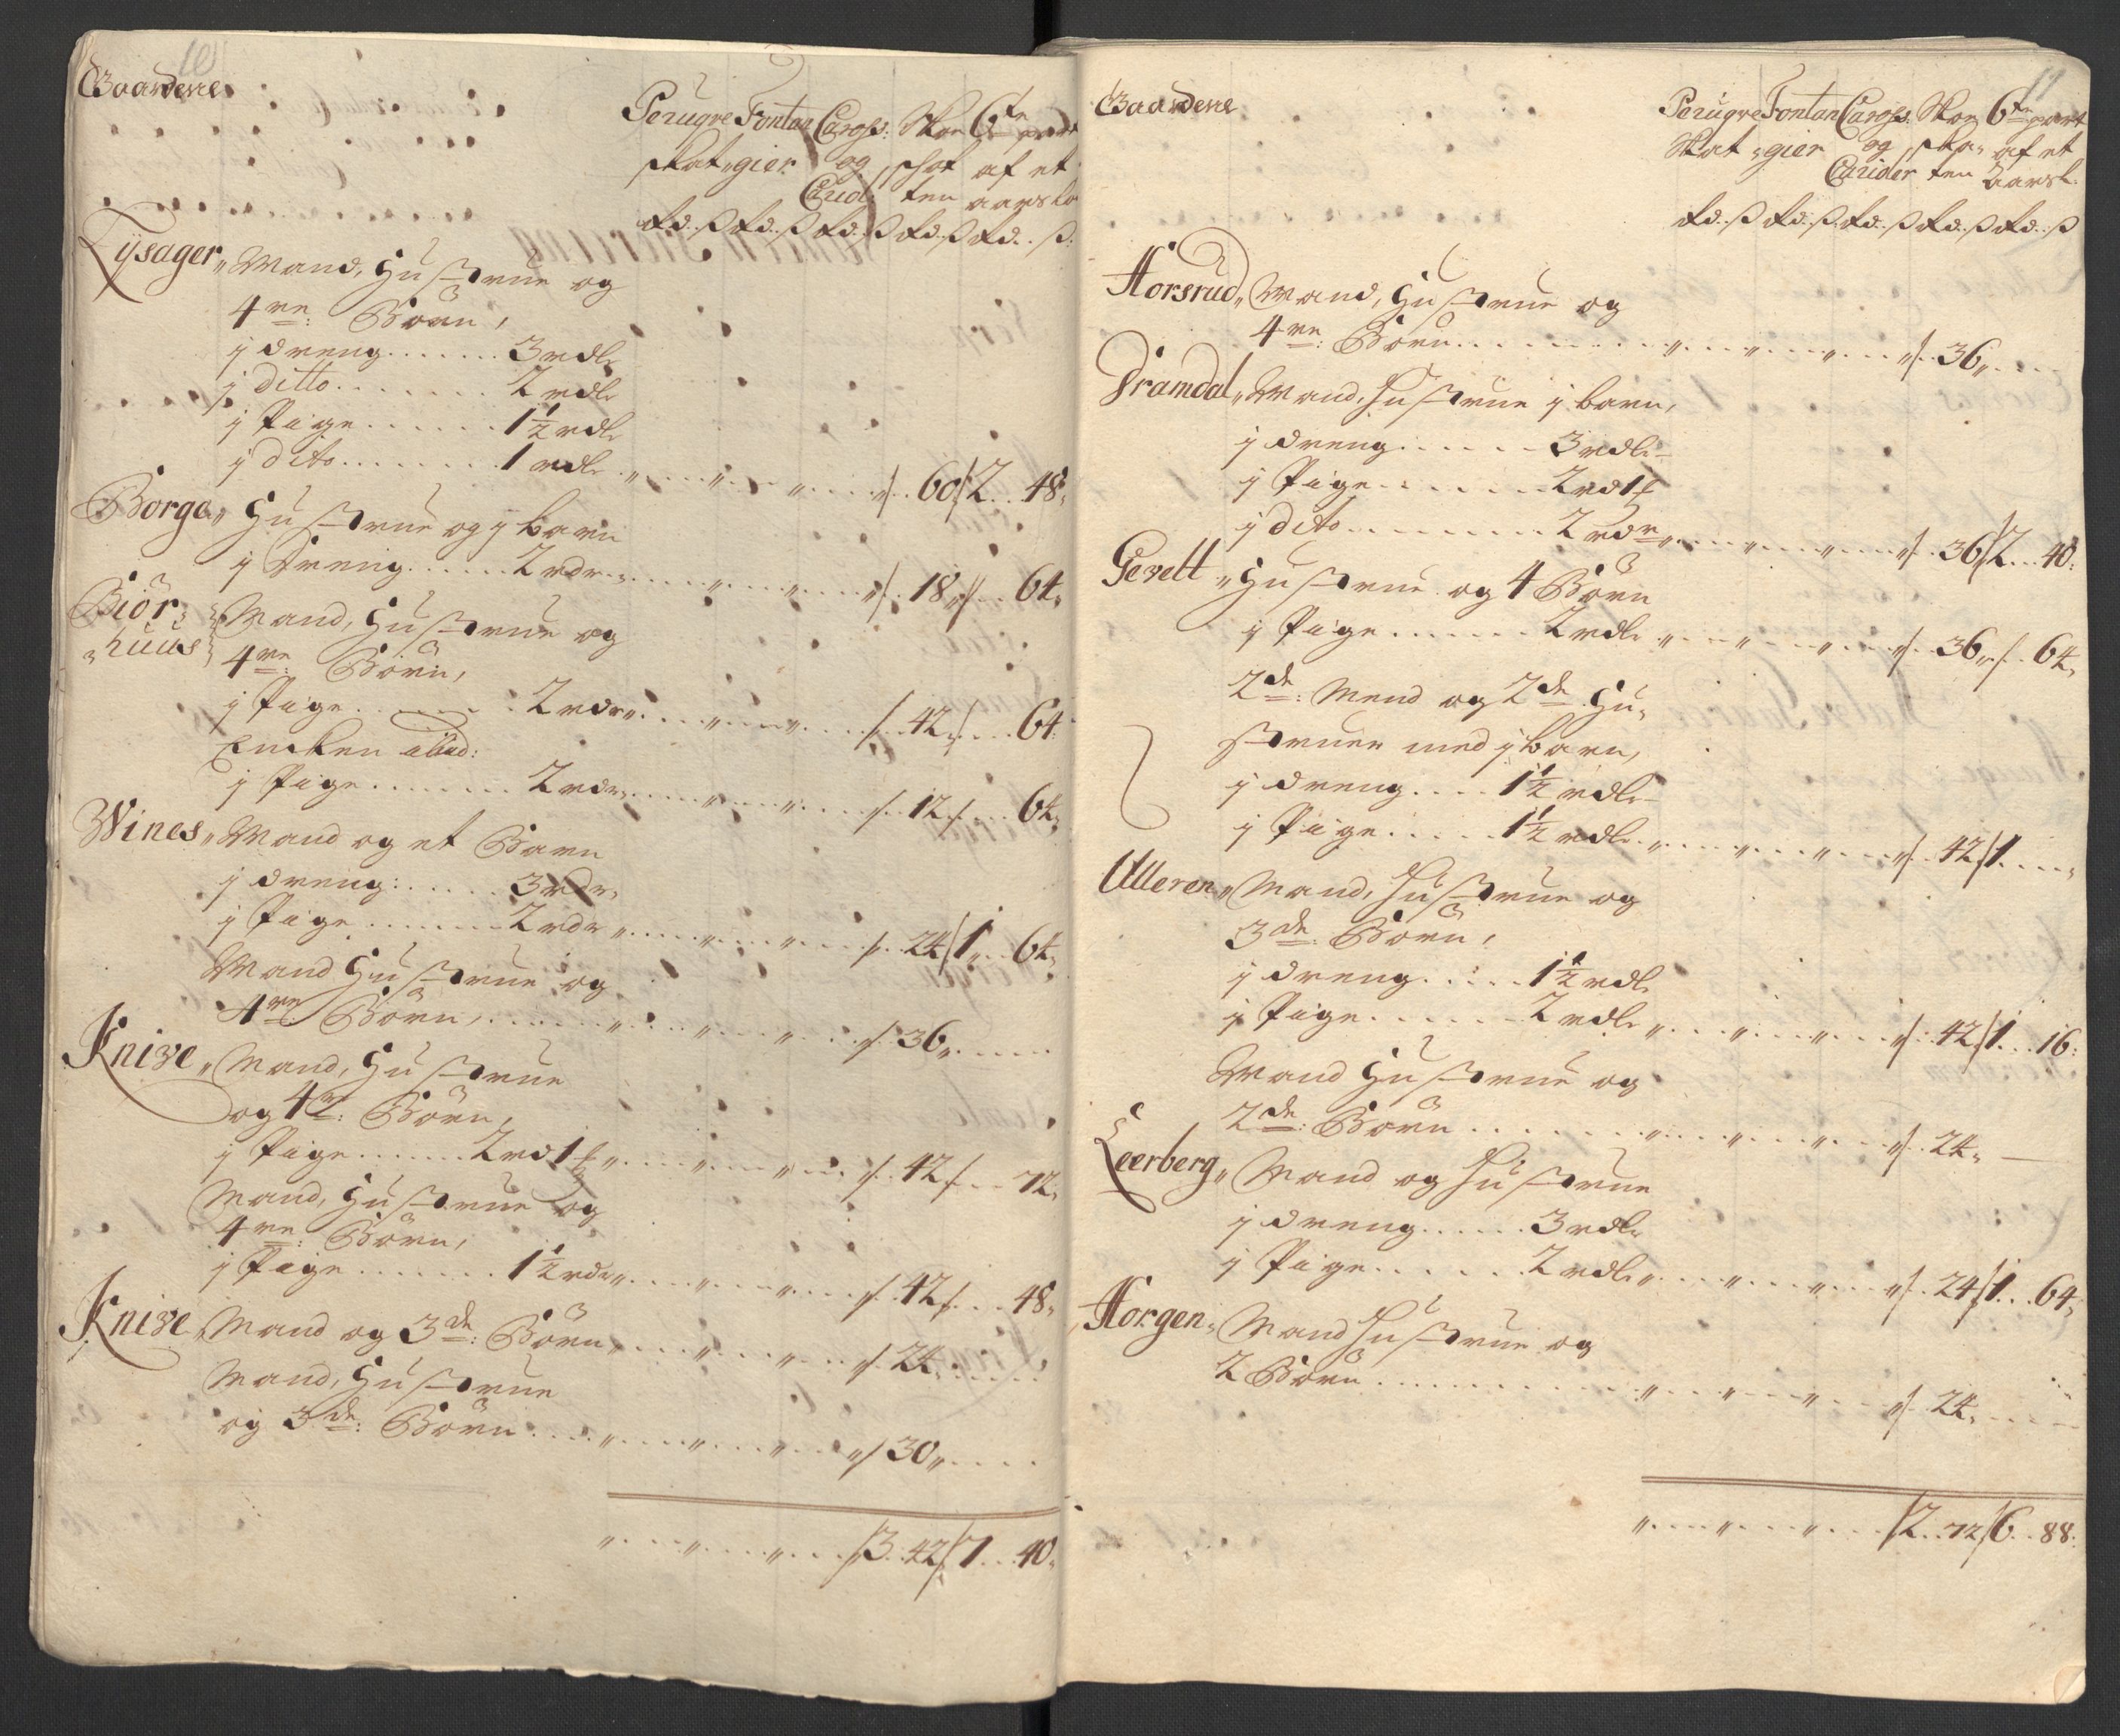 10
Gaardene
Peruqve Fontan Caross: Skoe 6te part
skat gier og schat af et
Carid: ten aars lø
rd. ß rd. ß rd. ß rd. ß rd. ß:
Tysager „ Mand, Hustrue og
4re: Børn,
j dreng ....... 3 rdlr
j ditto ....... 2 rdlr
j Pige ...... 1½ rdlr
j dito ........ 1 rdlr „ „ „ 60 2 .. 48
Borge „ Hustrue og j barn
j Dreng ...... 2 rdr „ „ „ 18 „ 64
Biør „ huus Mand, Hustrue og
4re: Børn,
j Pige ....... 2 rdr „ „ „ 42 .... 64
Encken ibid:
j Pige ....... 2 rdr „ „ „ 12 .... 64
Wines „ Mand og et Barn
j dreng: ..... 3 rdr
j Pige ....... 2 rdr „ „ „ 24 1 .. 64
Mand Hustrue og
4re Børn, ...... „ „ „ 36 „ ....
Knise „ Mand, Hustrue
og 4re: Børn,
j Pige ...... 2 rd 1 f „ „ „ 42 ... 72
Mand, Hustrue og
4re: Børn,
j Pige ....... 1½ rdr „ „ „ 42 ... 48
Knise „ Mand og 3de: Børn „ „ „ 24 „
Mand, Hustrue
og 3de: Børn .... „ „ „ 30 „ ....
„ „ „ 3 .. 42 7 .. 40
11
Gaardene
Peruqve Fontan Caross: Skoe 6te part
Skat gier og ska af et
Carider ten Aarsl.
rd. ß rd. ß rd. ß rd. ß rd. ß
Horsrud „ Mand, Hustrue og
4re: Børn .......... „ „ „ 36 „ ....
Dramdal „ Mand, Hustrue j barn,
j dreng ...... 3 rdlr
j Pige ....... 2 rd 1 f
j dito ......... 2 rdr „ „ „ 36 2 ... 40
Gevelt „ Hustrue og 4 Børn
j Pige ....... 2 rdlr „ „ „ 36 „ .. 64
2de: Mend og 2de Hu„
struer med j barn,
j dreng .... 1½ rdlr
j Pige ..... 1½ rdlr „ „ „ 42 1 ....
Ulleren „ Mand, Hustrue og
3de: Børn,
j dreng ..... 1½ rdlr
j Pige ...... 2 rdlr „ „ „ 42 1 ... 16
Mand Hustrue og
2de: Børn ...... „ „ „ 24 „ —
Leerberg „ Mand og Hustrue
j dreng ..... 3 rdlr
j Pige ...... 2 rdlr „ „ „ 24 1 ... 64
Horgen „ Mand Hustrue og
2 Børn ............ „ „ „ 24 „ ....
„ „ „ 2 .. 72 6 .. 88